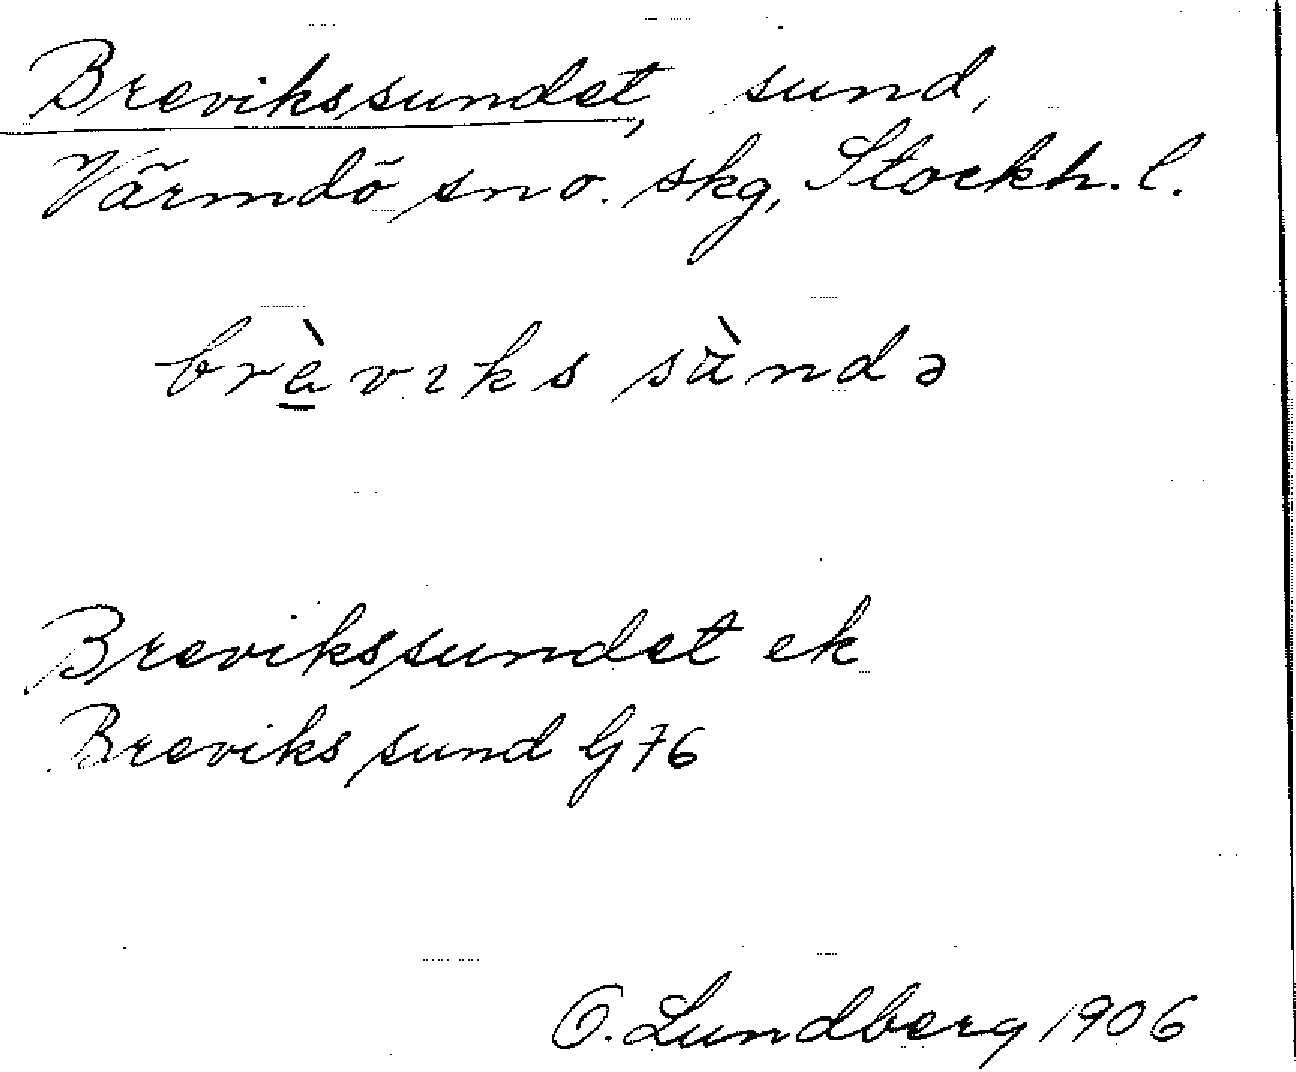 Brevikssundet, sund,
Värmdö sn o. skg, Stockh. l.
brèvıks sàndə
Brevikssundet ek
Breviks sund G 76
O. Lundberg 1906